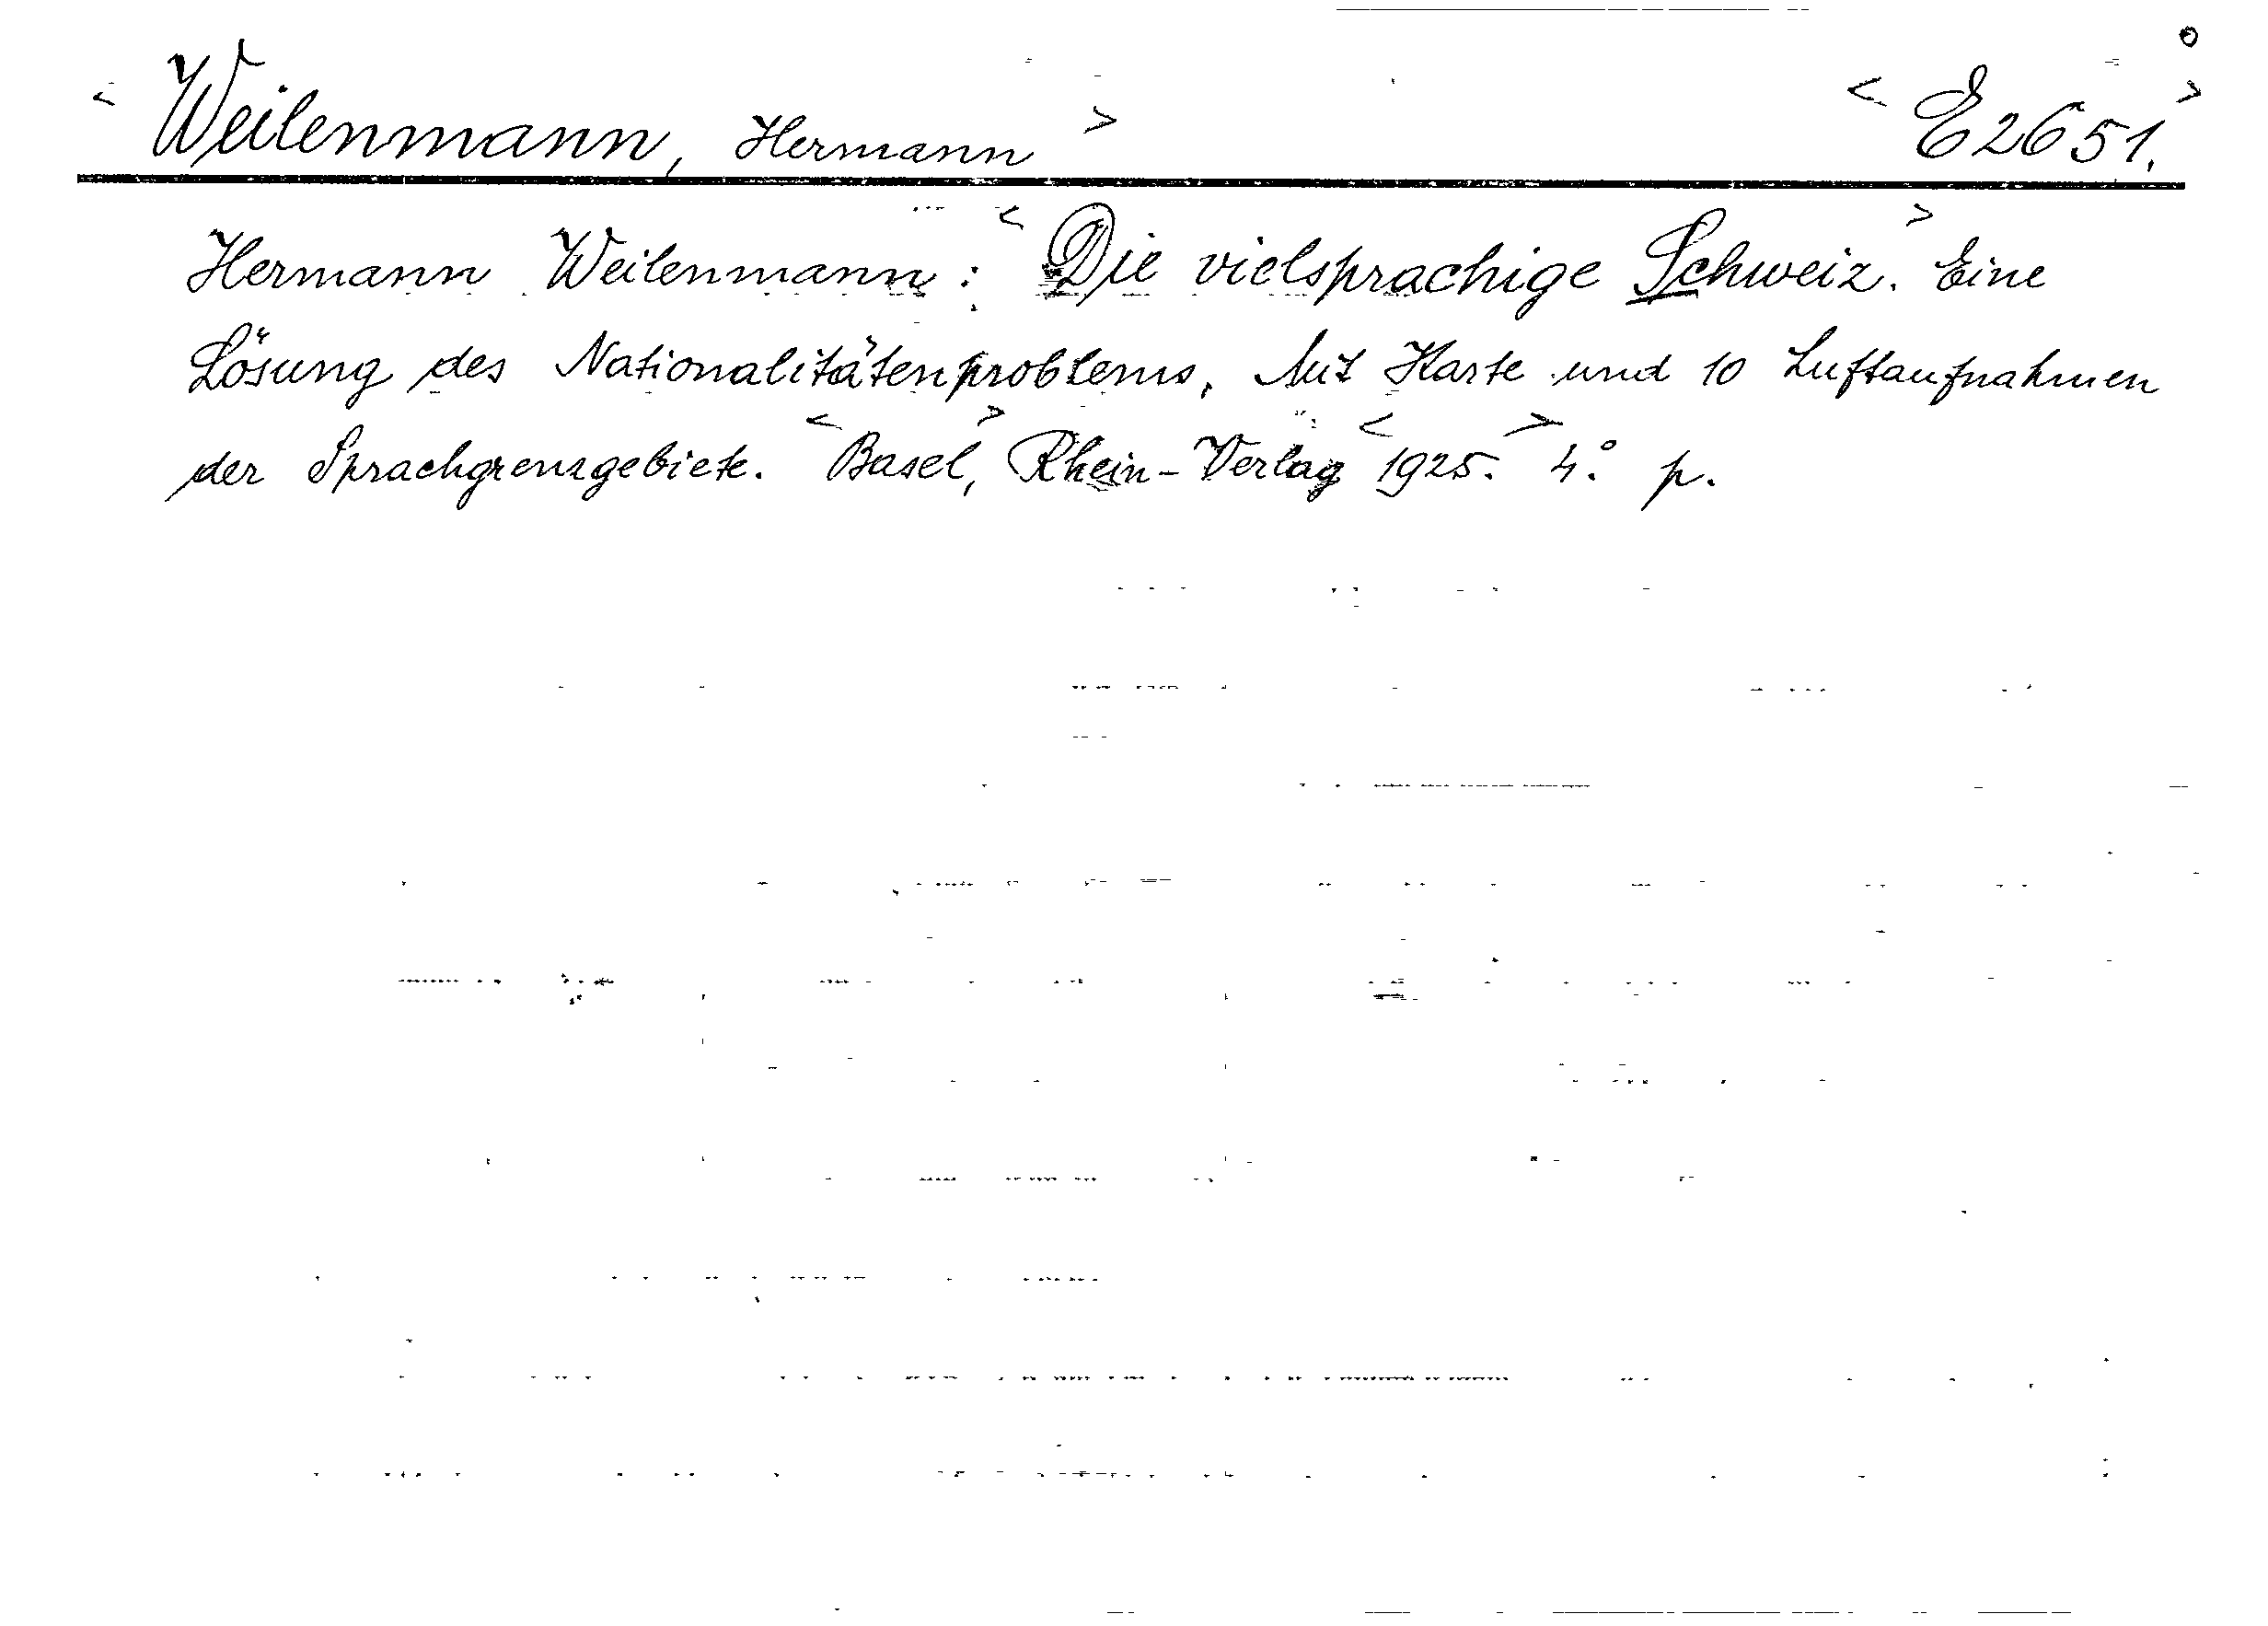 < Weilenmann, Hermann > < E2651. >
Hermann Weilenmann: < Die vielsprachige Schweiz. > Eine
Lösung des Nationalitätenproblems. Mit Karte und 10 Luftaufnahmen
der Sprachgrenzgebiete. < Basel, > Rhein-Verlag < 1925. > 4° p.